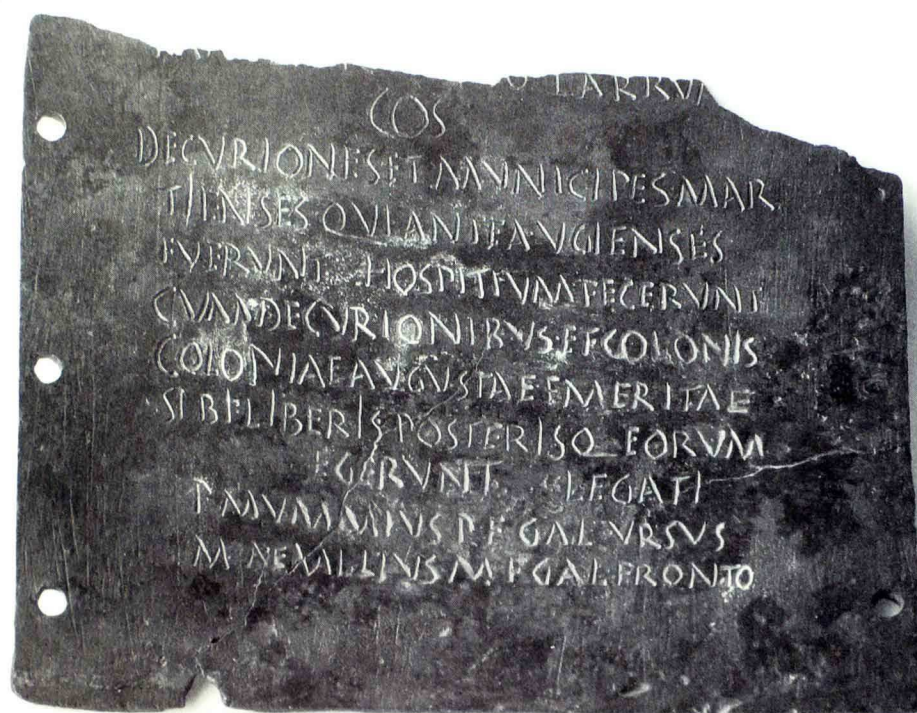 LARRVN
COS
DECVRIONES ET MVNICIPES MAR
TIENSES QVI ANTE AVGIENSES
FVERVNT HOSPITIVM FECERVNT
CVM DECVRIONIBVS ET COLONIS
COLONIAE AVGVSTAE EMERITAE
SIBI LIBERIS POSTERISQ EORVM
EGERVNT LEGATI
P MVMMIVS P F GAL VRSVS
M AEMILIVS M F GAL FRONTO